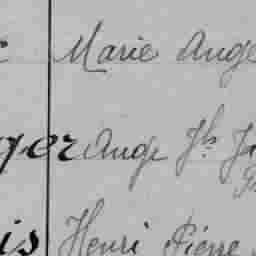 Marie Ange
ger Ange Jh
is Henri Pierre